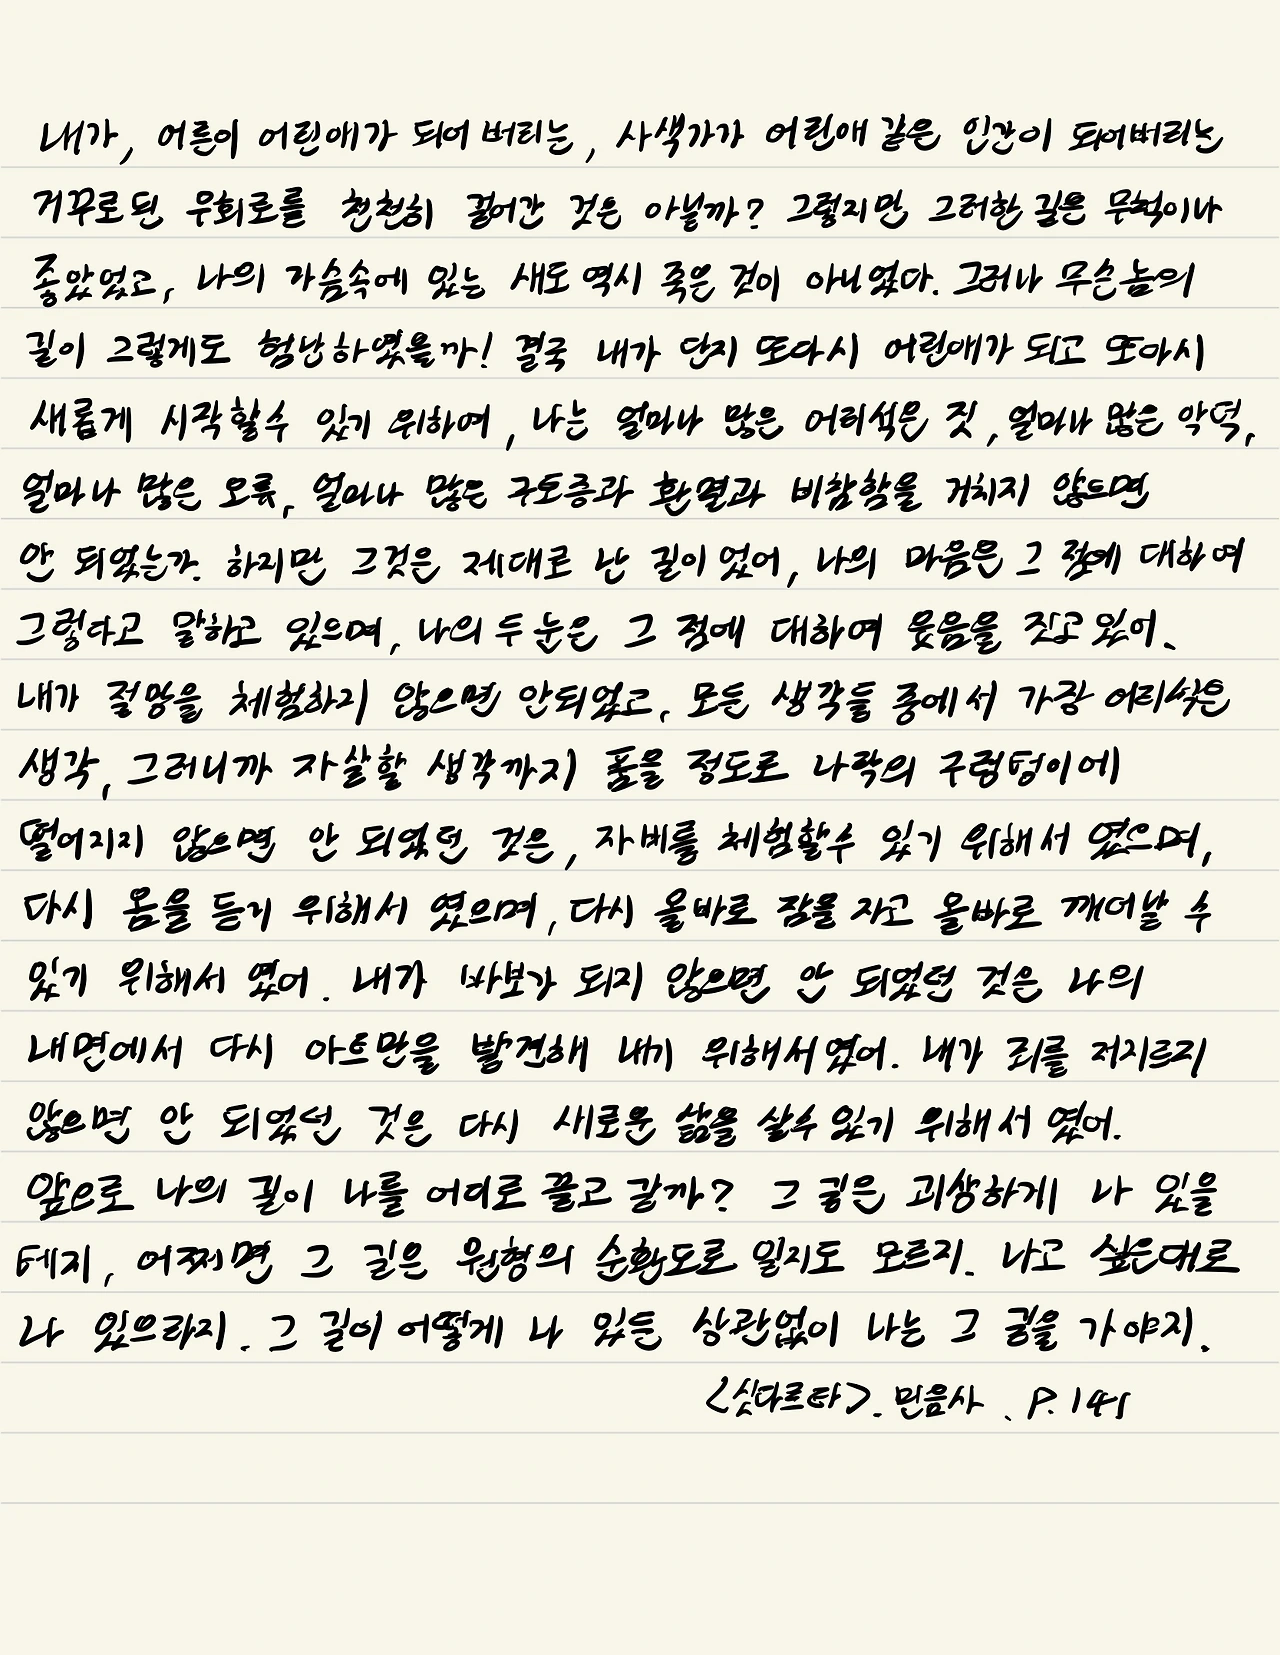 내가, 어른이 어린애가 되어 버리는, 사색가가 어린애 같은 인간이 되어버리는
거꾸로된 우회로를 천천히 걸어간 것은 아닐까? 그렇지만 그러한 길은 무척이나
좋았었고, 나의 가슴속에 있는 새도 역시 죽은 것이 아니었다. 그러나 무슨놈의
길이 그렇게도 험난하였을까! 결국 내가 단지 또다시 어린애가 되고 또다시
새롭게 시작할수 있기 위하여, 나는 얼마나 많은 어리석은 짓, 얼마나 많은 악덕,
얼마나 많은 오류, 얼마나 많은 구토증과 환멸과 비참함을 거치지 않으면
안 되었는가. 하지만 그것은 제대로 난 길이었어, 나의 마음은 그 점에 대하여
그렇다고 말하고 있으며, 나의 두 눈은 그 점에 대하여 웃음을 짓고 있어.
내가 절망을 체험하지 않으면 안되었고, 모든 생각들 중에서 가장 어리석은
생각, 그러니까 자살할 생각까지 품을 정도로 나락의 구렁텅이에
떨어지지 않으면 안 되었던 것은, 자비를 체험할수 있기 위해서 였으며,
다시 옴을 듣기 위해서 였으며, 다시 올바로 잠을 자고 올바로 깨어날 수
있기 위해서 였어. 내가 바보가 되지 않으면 안 되었던 것은 나의
내면에서 다시 아트만을 발견해 내기 위해서였어. 내가 죄를 저지르지
않으면 안 되었던 것은 다시 새로운 삶을 살수 있기 위해서 였어.
앞으로 나의 길이 나를 어디로 끌고 갈까? 그 길은 괴상하게 나 있을
테지, 어쩌면 그 길은 원형의 순환도로 일지도 모르지. 나고 싶은대로
나 있으라지. 그 길이 어떻게 나 있든 상관없이 나는 그 길을 가야지.
<싯다르타>. 민음사. P. 141